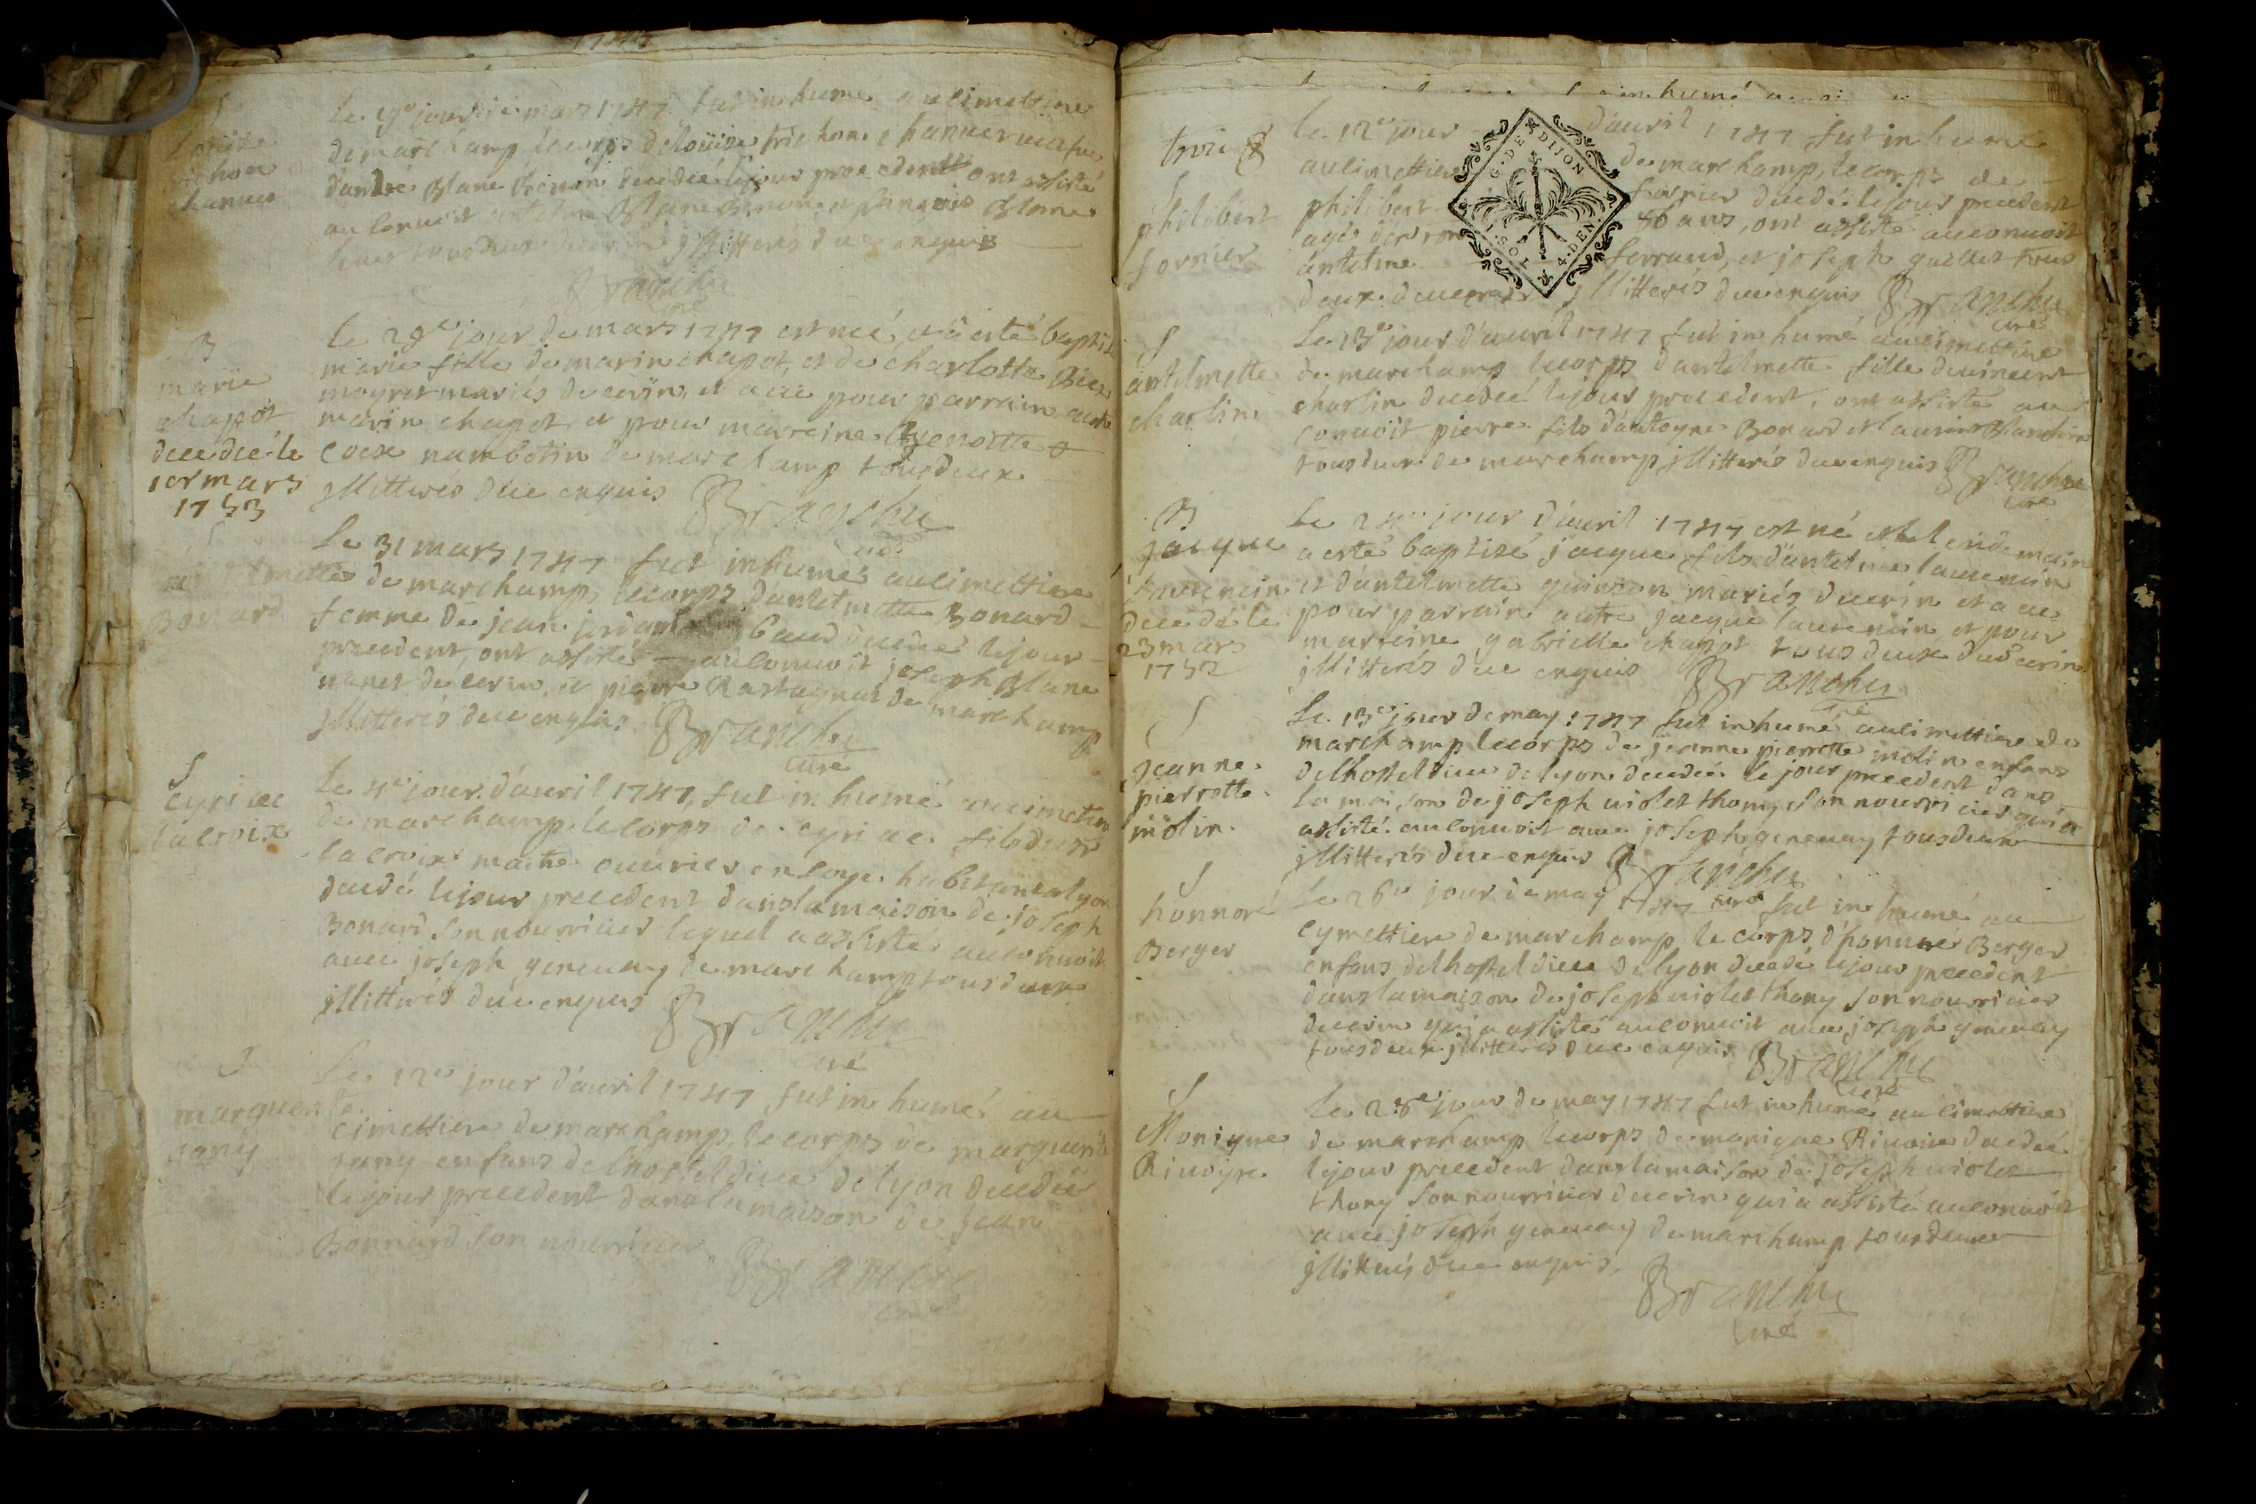 1747
Le jour de mars 1747 fut inhumé au cimettiere
de marchamp, le corps de Loüise
decedé le jour precedent ont assisté
au convoit antelme Blanc
tous deux illitterés duë enquis
Branchu
curé
B
marie
chapot
decedée le
1er mars
1753
Le 28e jour de mars 1747 est née, et a esté baptis
marie fille de marin chapot, et de charlotte
mariés de cerin, et a eu pour parrain autre
marin chapot, et pour marreine Benoitte
nambotin de marchamp tous deux
illitterés duë enquis Branchu
S
Bonard
Le 31 mars 1747 fut inhumée au cimettiere
de marchamp, le corps d'antelmette Bonard
femme de jean decedée le jour
precedent, ont assisté au convoit joseph Blanc
de cerin, et pierre de marchamp
illitterés duë enquis Branchu
curé
S
Cyriac
Lacroix
Le 4e jour d'auril 1747, fut inhumé au cimettiere
de marchamp le corps de Cyriac fils de
Lacroix maitre ouurier en soye habitant a lyon
decedé le jour precedent dans la maison de joseph
Bonard son nourricier lequel a assisté au convoit
avec joseph genevay de marchamp tous deux
illitterés duë enquis Branchu
curé
S
marguerite
Le 12e jour d'auril 1747 fut inhumé au
cimettiere de marchamp le corps de marguerite
enfans de lhostel dieu de lyon decedée
le jour precedent dans la maison de jean
Bonnard son nourricier. Branchu
curé
trois
S
philibert
fornier
G. DE DIJON
4. DEN.
1. SOL
Le 12e jour d'auril 1747 fut inhumé
au cimettiere de marchamp, le corps de
philibert fornier decedé le jour precedent
agés d'environ 56 ans, ont assisté au convoit
antelme ferrand, et joseph tous
deux illitterés duë enquis Branchu
curé
S
antelmette
charlin
Le 13e jour d'auril 1747 fut inhumé au cimettiere
de marchamp le corps d'antelmette fille de vincent
charlin decedé le jour precedent, ont assisté au
convoit pierre fils d'antoyne Bonard et
tous deux de marchamp, illitterés duë enquis Branchu
curé
B
jacque
laurencin
decedé le
23 mars
1752
Le 24e jour d'auril 1747 est né et le lendemain
a esté baptizé, jacque fils d'antelme laurencin
et d'antelmette quinson mariés de cerin et a eu
pour parrain autre jacque laurencin et pour
marreine gabrielle chapot tous deux de cerin
illitterés duë enquis Branchu
curé
S
jeanne
pierrette
molin
Le 13e jour de may 1747 fut inhumé au cimettiere de
marchamp le corps de jeanne pierrette molin enfans
de lhostel dieu de lyon decedée le jour precedent dans
la maison de joseph violet thony son nourricier qui a
assisté au convoit avec joseph genevay tous deux
illitterés duë enquis Branchu
curé
S
honnoré
Berger
Le 26e jour de may 1747 fut inhumé au
cymettiere de marchamp le corps d'honnoré Berger
enfans de lhostel dieu de lyon decedé le jour precedent
dans la maison de joseph violet thony son nourricier
de cerin qui a assisté au convoit avec joseph genevay
tous deux illitterés duë enquis Branchu
curé
S
Monique
Rivoyre
Le 28e jour de may 1747 fut inhumé au cimettiere
de marchamp le corps de monique Rivoire decedée
le jour precedent dans la maison de joseph violet
thony son nourricier de cerin qui a assisté au convoit
avec joseph genevay de marchamp tous deux
illitterés duë enquis.
Branchu
curé